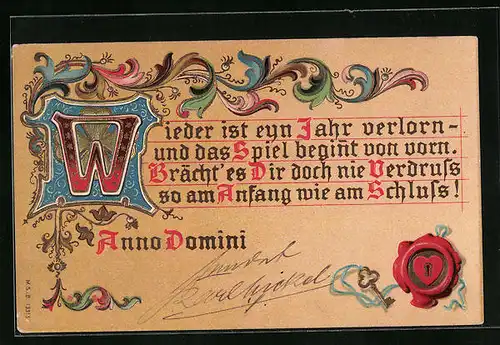 Wieder ist eyn Jahr verlorn-
und das Spiel begin̄t von vorn.
Brächt' es Dir doch nie Verdruss
so am Anfang wie am Schluss!
Anno Domini